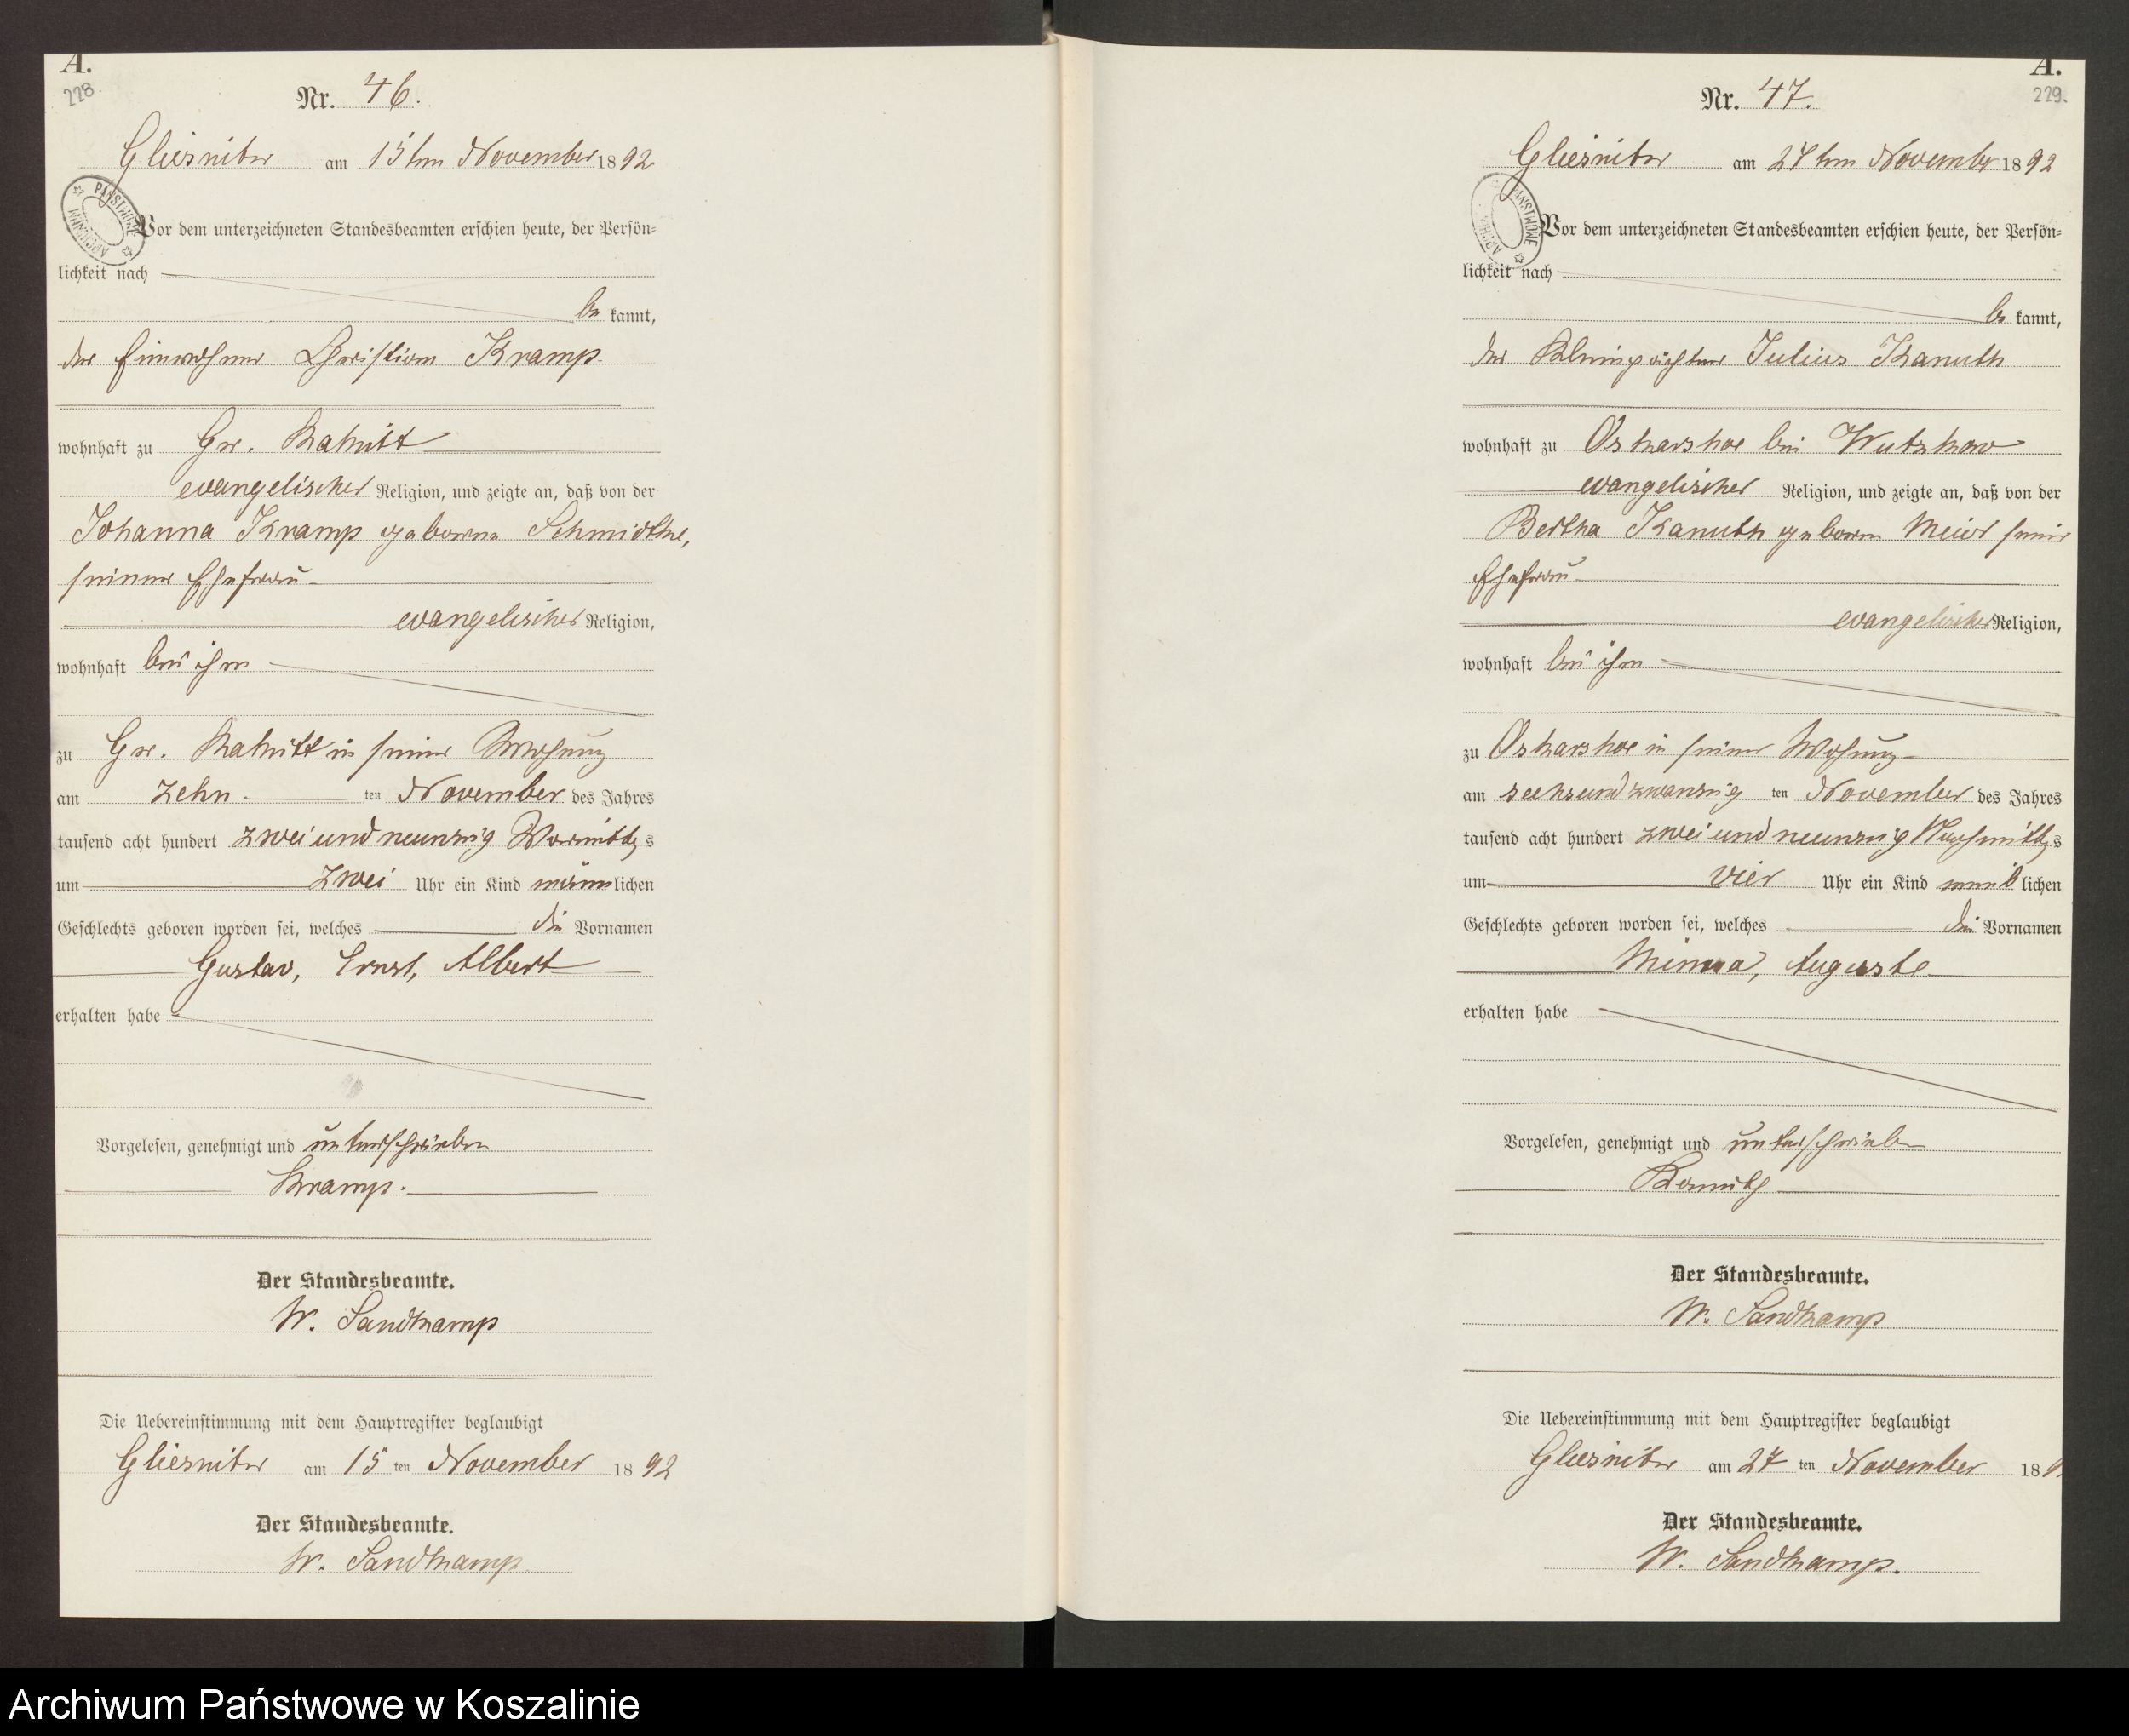 A.
228.
Nr. 46.
Gliesnitz am 15ten November 1892
Vor dem unterzeichneten Standesbeamten erschien heute, der Persön-
lichkeit nach
be kannt,
der Einwohner Christian Kramp
wohnhaft zu Gr. Rakitt
evangelischer Religion, und zeigte an, daß von der
Johanna Kramp geborene Schmidtke,
seiner Ehefrau
evangelischer Religion,
wohnhaft bei ihm
zu Gr. Rakitt in seiner Wohnung
am zehn ten November des Jahres
tausend acht hundert zwei und neunzig Vormittags
um zwei Uhr ein Kind männlichen
Geschlechts geboren worden sei, welches die Vornamen
Gustav, Ernst, Albert
erhalten habe
Vorgelesen, genehmigt und unterschrieben
Kramp.
Der Standesbeamte.
W. Sandkamp
Die Uebereinstimmung mit dem Hauptregister beglaubigt
Gliesnitz am 15 ten November 1892
Der Standesbeamte.
W. Sandkamp.
PAŃSTWOWE ARCHIWUM
A.
229.
Nr. 47.
Gliesnitz am 27ten November 1892
Vor dem unterzeichneten Standesbeamten erschien heute, der Persön-
lichkeit nach
be kannt,
der Kleinpächter Julius Kanuth
wohnhaft zu Oskarshoe bei Wutzkow
evangelischer Religion, und zeigte an, daß von der
Bertha Kanuth geborene Meier seiner
Ehefrau
evangelischer Religion,
wohnhaft bei ihm
zu Oskarshoe in seiner Wohnung
am sechsundzwanzig ten November des Jahres
tausend acht hundert zwei und neunzig Nachmittags
um vier Uhr ein Kind weiblichen
Geschlechts geboren worden sei, welches die Vornamen
Minna, Auguste
erhalten habe
Vorgelesen, genehmigt und unterschrieben
Kanuth
Der Standesbeamte.
W. Sandkamp
Die Uebereinstimmung mit dem Hauptregister beglaubigt
Gliesnitz am 27 ten November 189
Der Standesbeamte.
W. Sandkamp.
PAŃSTWOWE ARCHIWUM
Archiwum Państwowe w Koszalinie